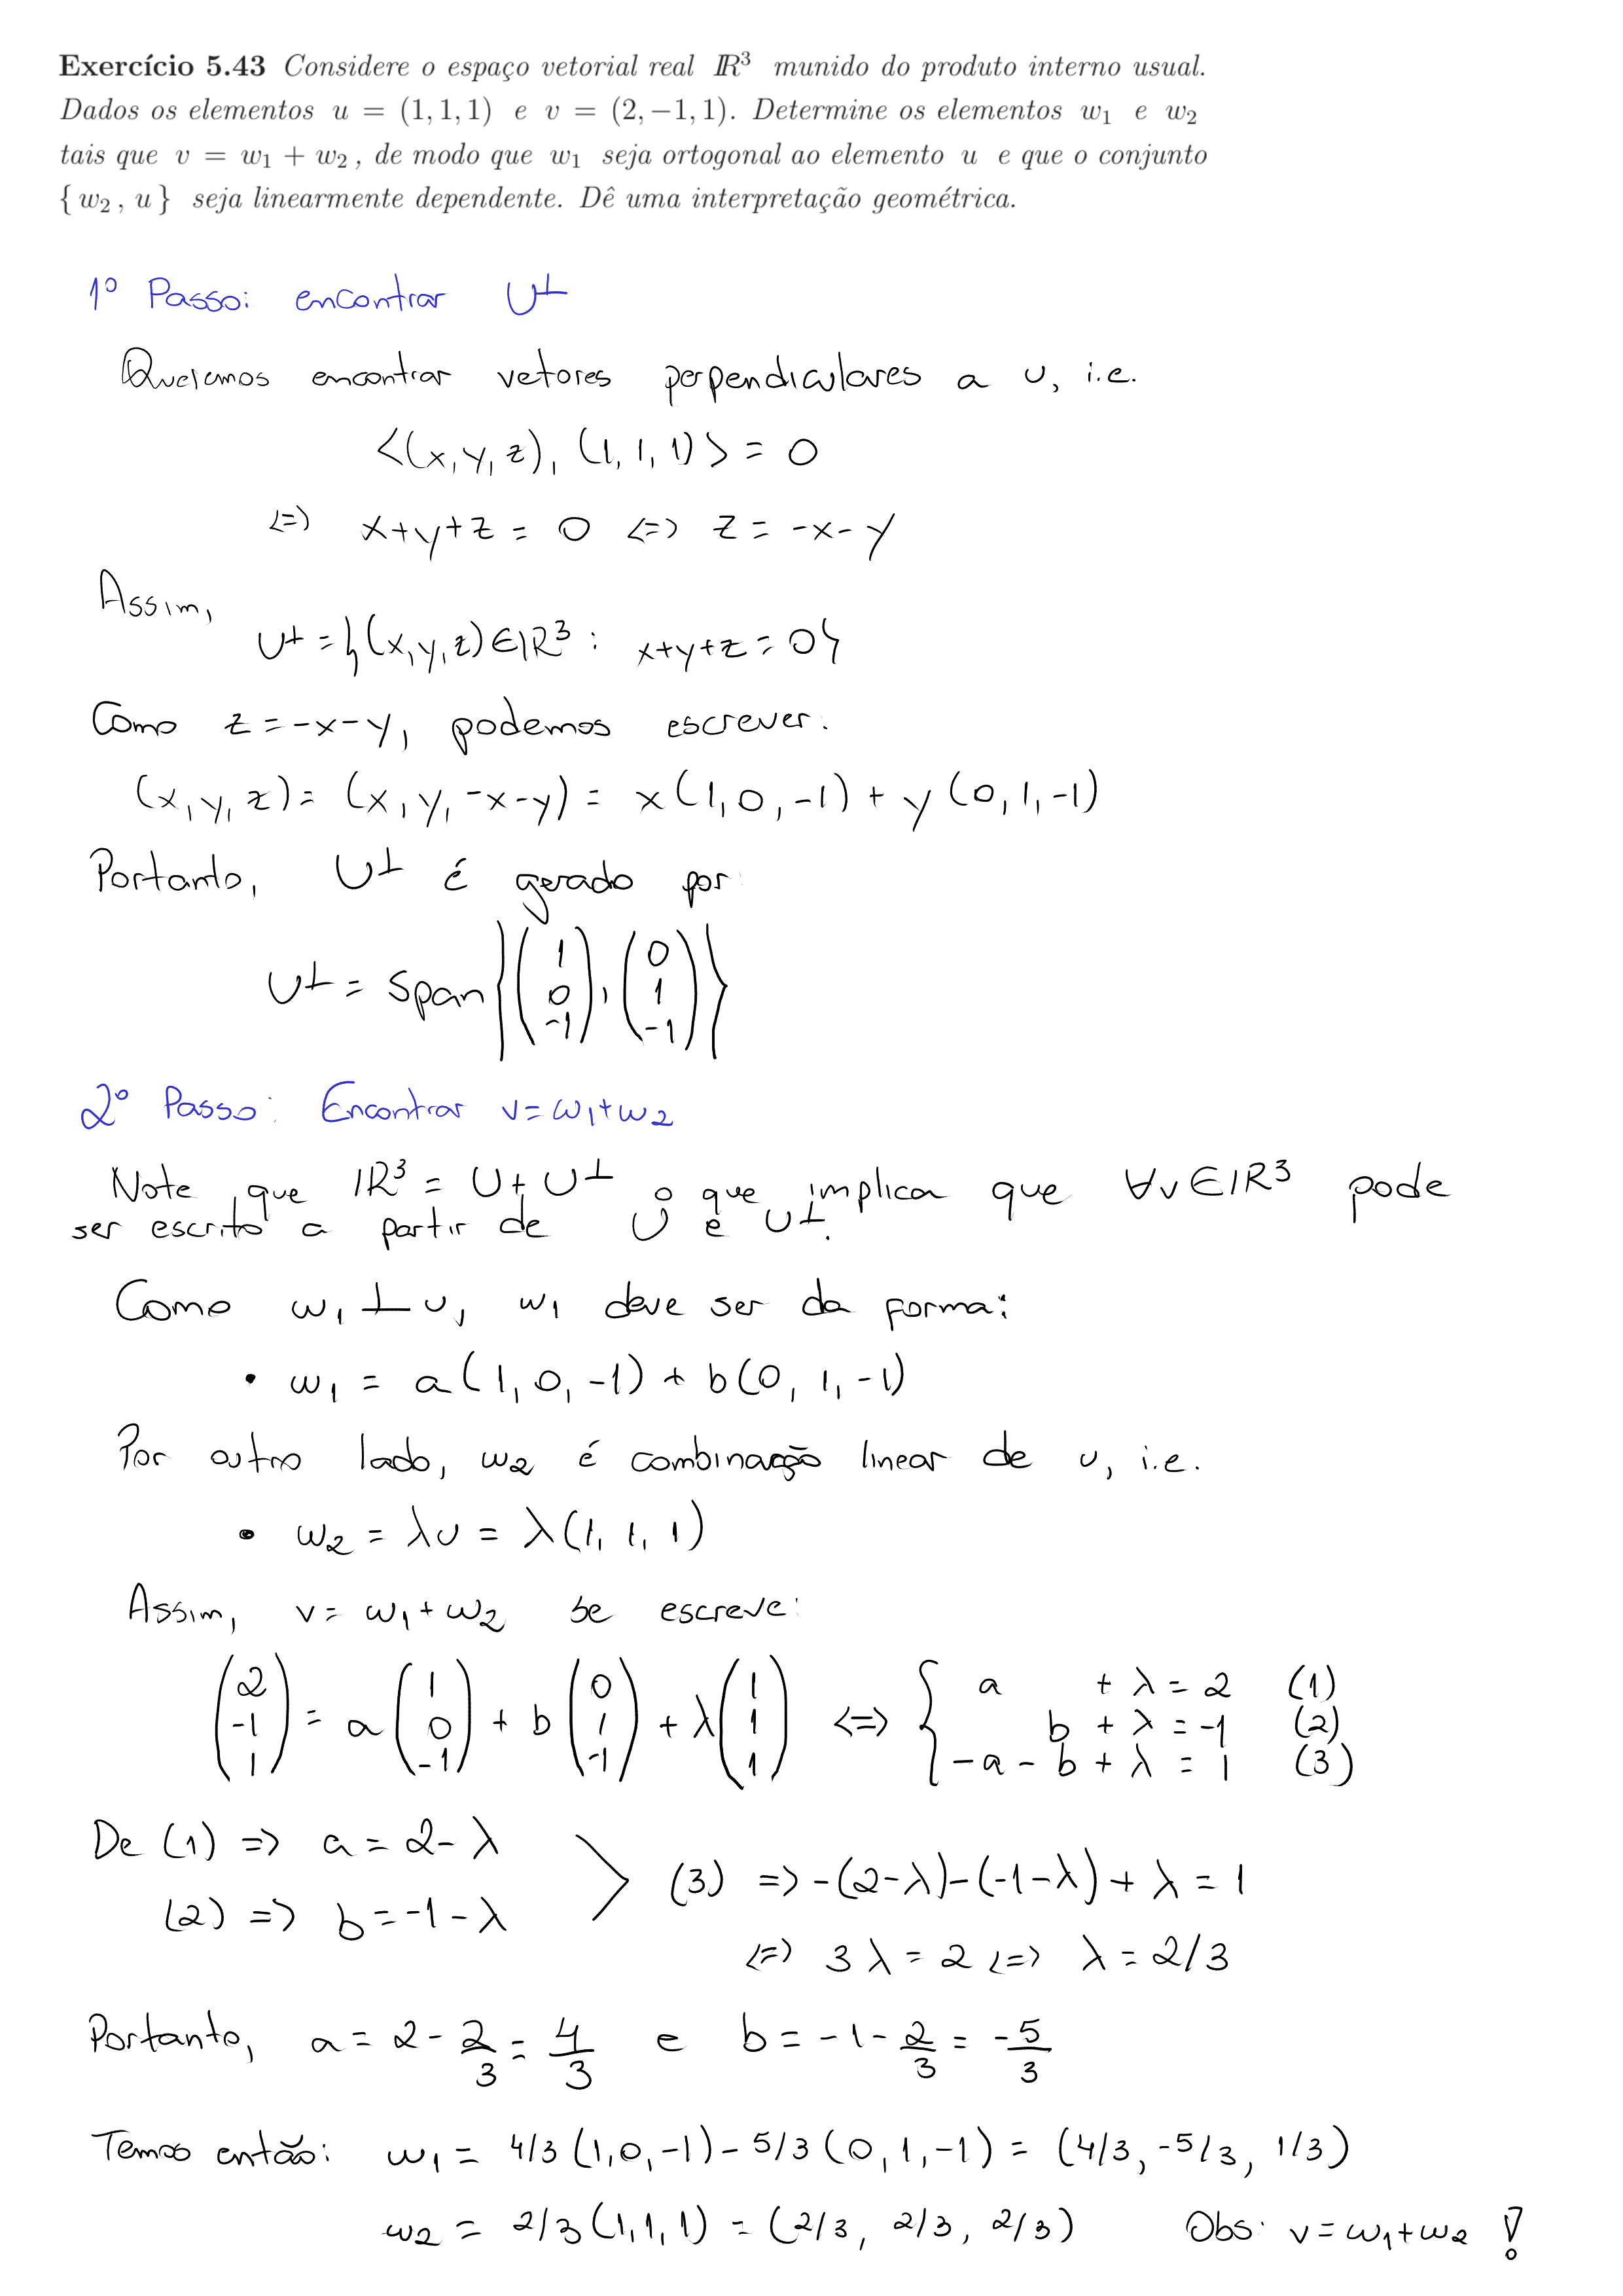 Exercício 5.43 Considere o espaço vetorial real ℝ³ munido do produto interno usual.
Dados os elementos u = (1, 1, 1) e v = (2, −1, 1). Determine os elementos w₁ e w₂
tais que v = w₁ + w₂ , de modo que w₁ seja ortogonal ao elemento u e que o conjunto
{ w₂ , u } seja linearmente dependente. Dê uma interpretação geométrica.
1º Passo: encontrar U⊥
Queremos encontrar vetores perpendiculares a u, i.e.
<(x, y, z), (1, 1, 1)> = 0
<=> x+y+z = 0 <=> z = -x-y
Assim,
U⊥ = {(x, y, z) ∈ ℝ³ : x+y+z = 0}
Como z = -x-y, podemos escrever:
(x, y, z) = (x, y, -x-y) = x(1, 0, -1) + y(0, 1, -1)
Portanto, U⊥ é gerado por:
U⊥ = Span{(1 0 -1), (0 1 -1)}
2º Passo: Encontrar v = w₁+w₂
Note que ℝ³ = U + U⊥ o que implica que ∀v ∈ ℝ³ pode
ser escrito a partir de U e U⊥.
Como w₁ ⊥ u, w₁ deve ser da forma:
• w₁ = a(1, 0, -1) + b(0, 1, -1)
Por outro lado, w₂ é combinação linear de u, i.e.
• w₂ = λu = λ(1, 1, 1)
Assim, v = w₁ + w₂ se escreve:
(2 -1 1) = a(1 0 -1) + b(0 1 -1) + λ(1 1 1) <=> { a + λ = 2 (1)
b + λ = -1 (2)
-a - b + λ = 1 (3)
De (1) => a = 2 - λ
(2) => b = -1 - λ
> (3) => -(2-λ)-(-1-λ) + λ = 1
<=> 3λ = 2 <=> λ = 2/3
Portanto, a = 2 - 2/3 = 4/3 e b = -1 - 2/3 = -5/3
Temos então: w₁ = 4/3 (1, 0, -1) - 5/3 (0, 1, -1) = (4/3, -5/3, 1/3)
w₂ = 2/3 (1, 1, 1) = (2/3, 2/3, 2/3) Obs: v = w₁+w₂ !